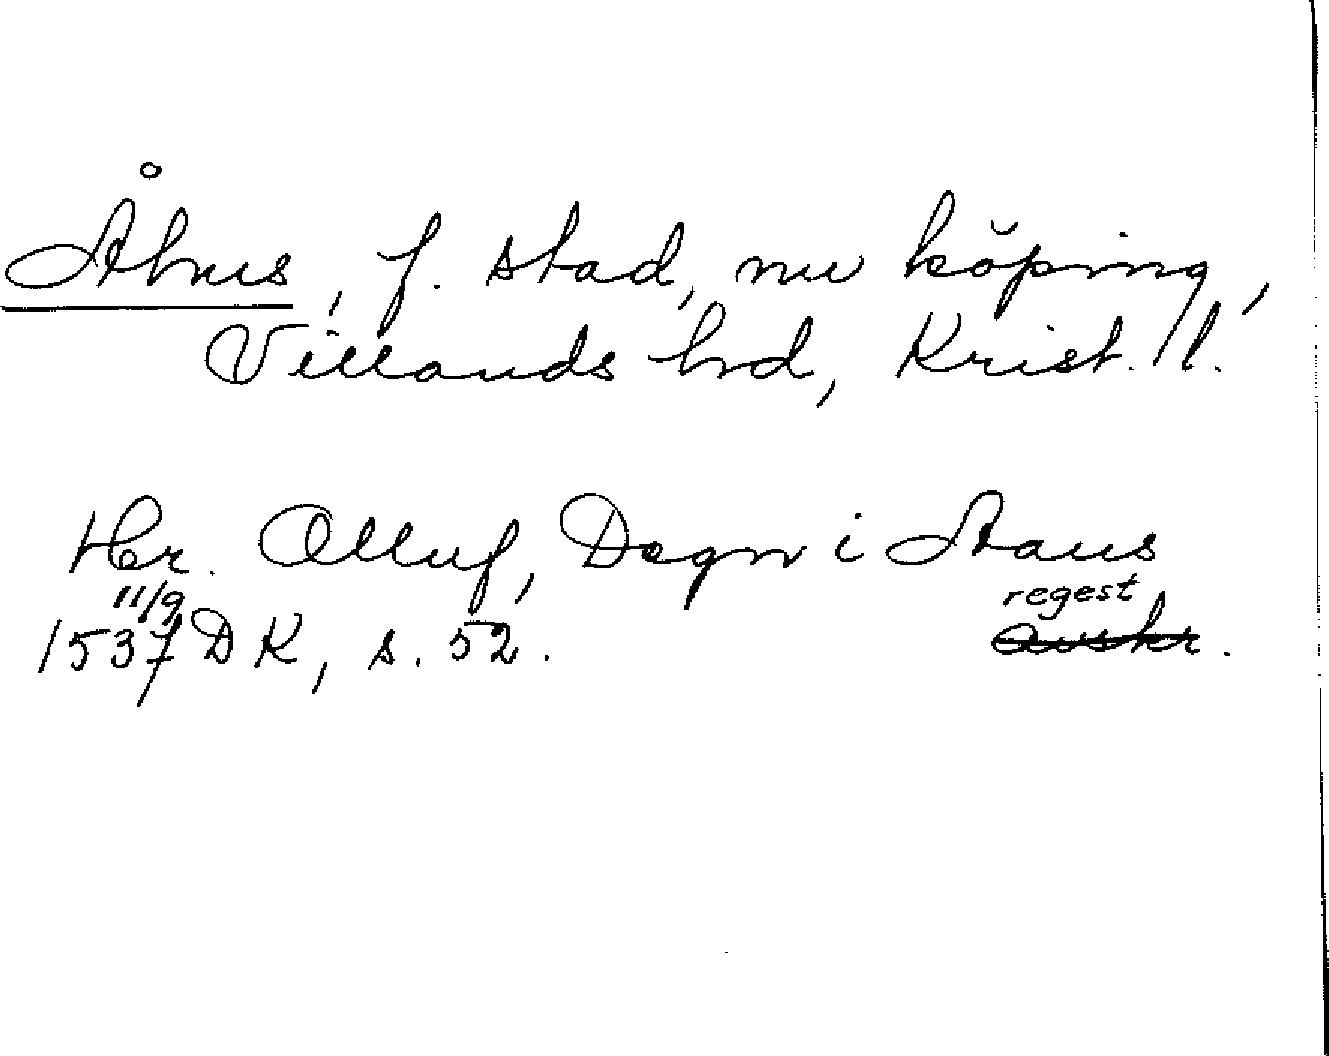 Åhus, f. stad, nu köping,
Villands hrd, Krist. l.
Hr. Olluf, Degn i Aaus
11/9 regest
1537 DK, s. 52. avskr.